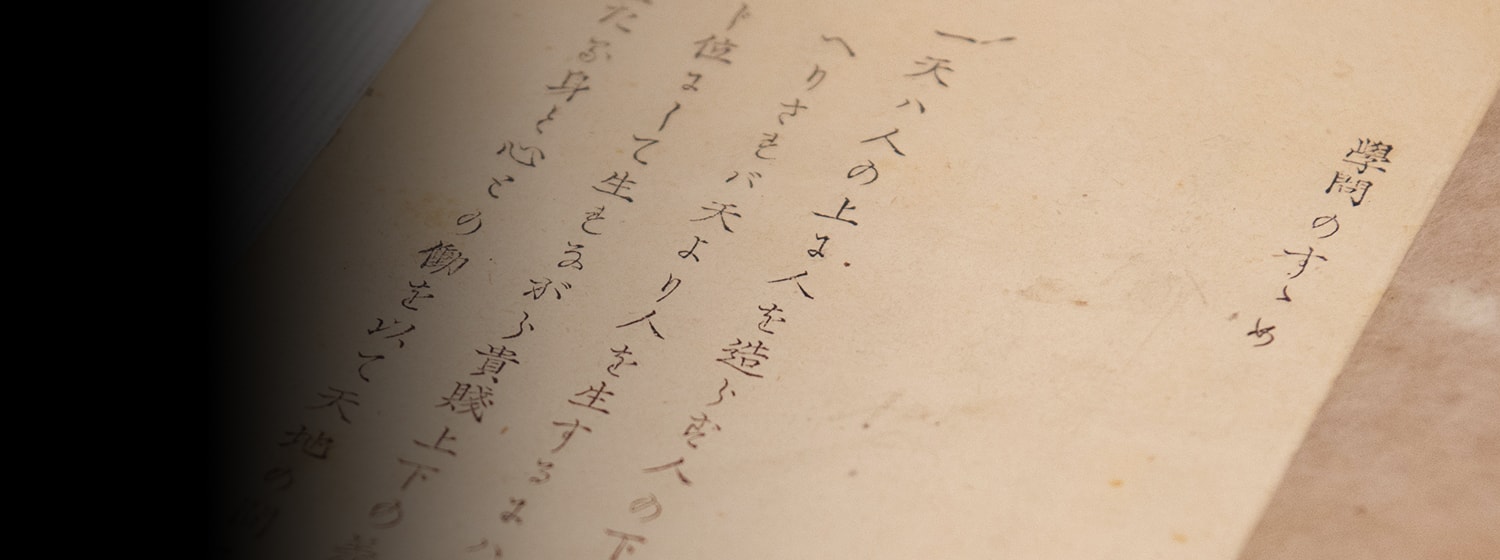 學問のすゝめ
一天ハ人の上に人を造らず人の下
へりされバ天より人を生するにハ
じ位にして生れながら貴賤上下の差
たる身と心との働を以て天地の間